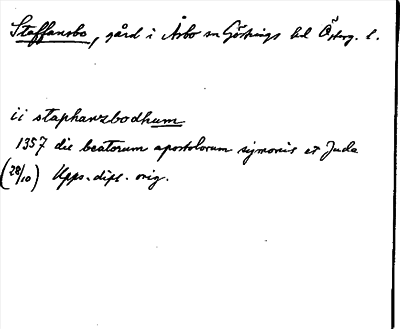 Staffansbo, gård i Åsbo sn Göstrings hd Österg. l.
ii staphanzbodhum
1357 die beatorum apostolorum symonis et Juda
(28/10) Upps. dipl. orig.